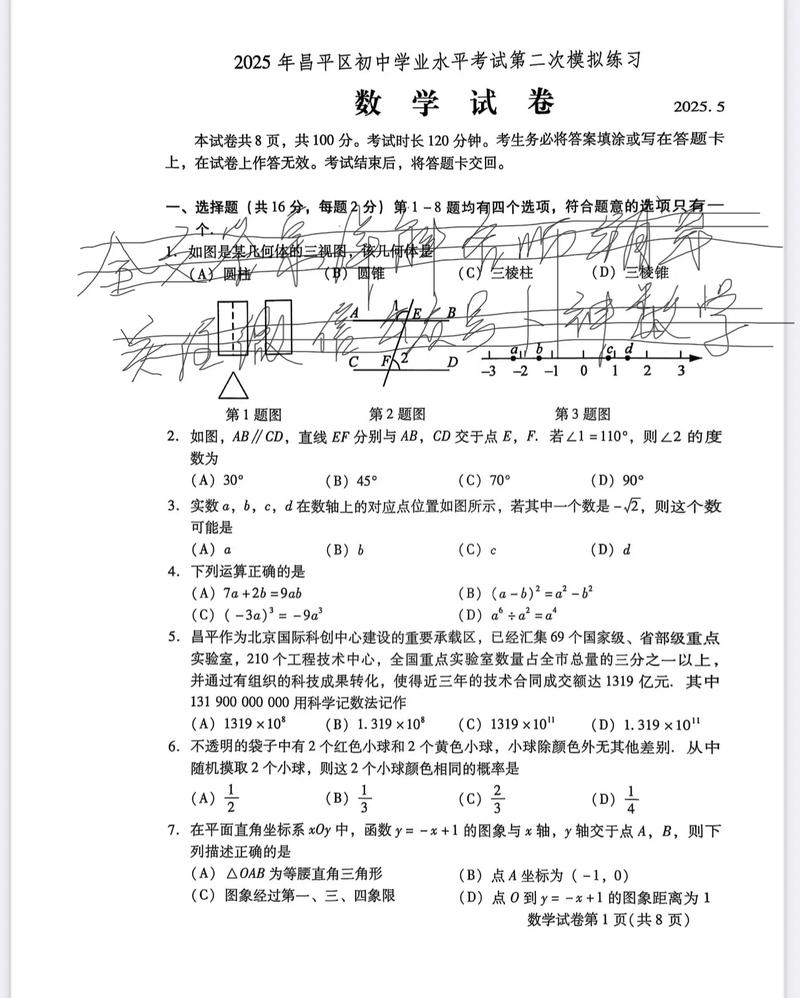 2025 年昌平区初中学业水平考试第二次模拟练习
数 学 试 卷
2025. 5
本试卷共 8 页，共 100 分。考试时长 120 分钟。考生务必将答案填涂或写在答题卡
上，在试卷上作答无效。考试结束后，将答题卡交回。
一、选择题（共 16 分，每题 2 分）第 1－8 题均有四个选项，符合题意的选项只有一
个.
1. 如图是某几何体的三视图，该几何体是
（A）圆柱 （B）圆锥 （C）三棱柱 （D）三棱锥
关注微信公众号 卜神数学
A 1 E B
C F 2 D
a b c d
-3 -2 -1 0 1 2 3
第 1 题图 第 2 题图 第 3 题图
2. 如图，AB∥CD，直线 EF 分别与 AB，CD 交于点 E，F. 若∠1 =110°，则∠2 的度
数为
（A）30° （B）45° （C）70° （D）90°
3. 实数 a，b，c，d 在数轴上的对应点位置如图所示，若其中一个数是 -√2，则这个数
可能是
（A）a （B）b （C）c （D）d
4. 下列运算正确的是
（A）7a +2b =9ab （B）(a - b)² = a² - b²
（C）( -3a)³ = -9a³ （D）a⁶ ÷ a² = a⁴
5. 昌平作为北京国际科创中心建设的重要承载区，已经汇集 69 个国家级、省部级重点
实验室，210 个工程技术中心，全国重点实验室数量占全市总量的三分之一以上，
并通过有组织的科技成果转化，使得近三年的技术合同成交额达 1319 亿元. 其中
131 900 000 000 用科学记数法记作
（A）1319 ×10⁸ （B）1. 319 ×10⁸ （C）1319 ×10¹¹ （D）1. 319 ×10¹¹
6. 不透明的袋子中有 2 个红色小球和 2 个黄色小球，小球除颜色外无其他差别. 从中
随机摸取 2 个小球，则这 2 个小球颜色相同的概率是
（A）1/2 （B）1/3 （C）2/3 （D）1/4
7. 在平面直角坐标系 xOy 中，函数 y = -x +1 的图象与 x 轴，y 轴交于点 A，B，则下
列描述正确的是
（A）△OAB 为等腰直角三角形 （B）点 A 坐标为（ -1，0）
（C）图象经过第一、三、四象限 （D）点 O 到 y = -x +1 的图象距离为 1
数学试卷第 1 页(共 8 页)